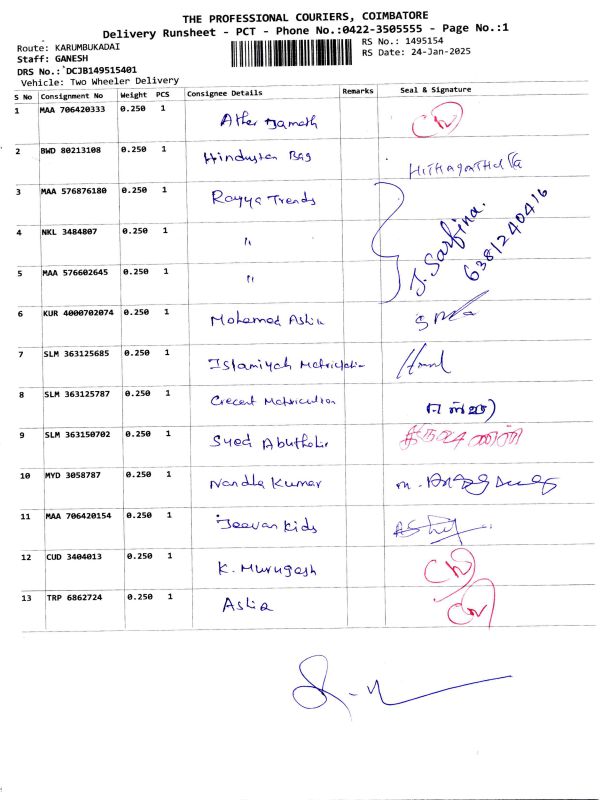 THE PROFESSIONAL COURIERS, COIMBATORE
Delivery Runsheet - PCT - Phone No.:0422-3505555 - Page No.:1
Route: KARUMBUKADAI
RS No.: 1495154
Staff: GANESH
RS Date: 24-Jan-2025
DRS No.: DCJB149515401
Vehicle: Two Wheeler Delivery
S No Consignment No Weight PCS Consignee Details Remarks Seal & Signature
1 MAA 706420333 0.250 1
2 BWD 80213108 0.250 1 Hindustan Bag
3 MAA 576876180 0.250 1 Rayya Trends J. Sarfina. 6381240416
4 NKL 3484807 0.250 1 "
5 MAA 576602645 0.250 1 "
6 KUR 4000702074 0.250 1 Mohamed
7 SLM 363125685 0.250 1 Islamiyah Matriculation
8 SLM 363125787 0.250 1 Crecent Matriculation
9 SLM 363150702 0.250 1 Syed
10 MYD 3058787 0.250 1 Nandha Kumar
11 MAA 706420154 0.250 1 Jeevan Kids
12 CUD 3404013 0.250 1 K. Murugesh
13 TRP 6862724 0.250 1